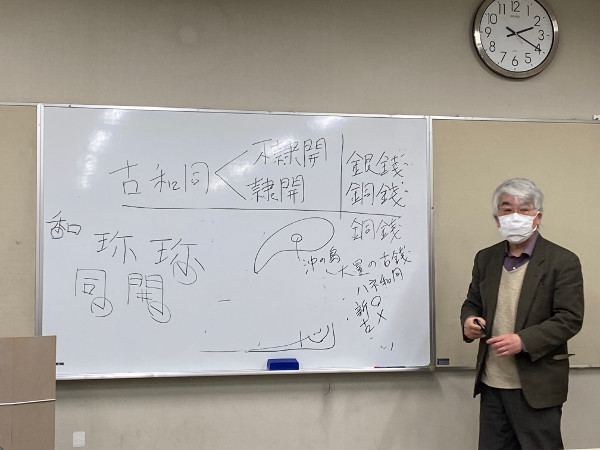 不隷開
古和同
隷開
銀銭
銅銭
銅銭
和
珎 珎
同 開
沖の島
大量の古銭
八不和同
新
古
12
1
2
3
4
5
6
7
8
9
10
11